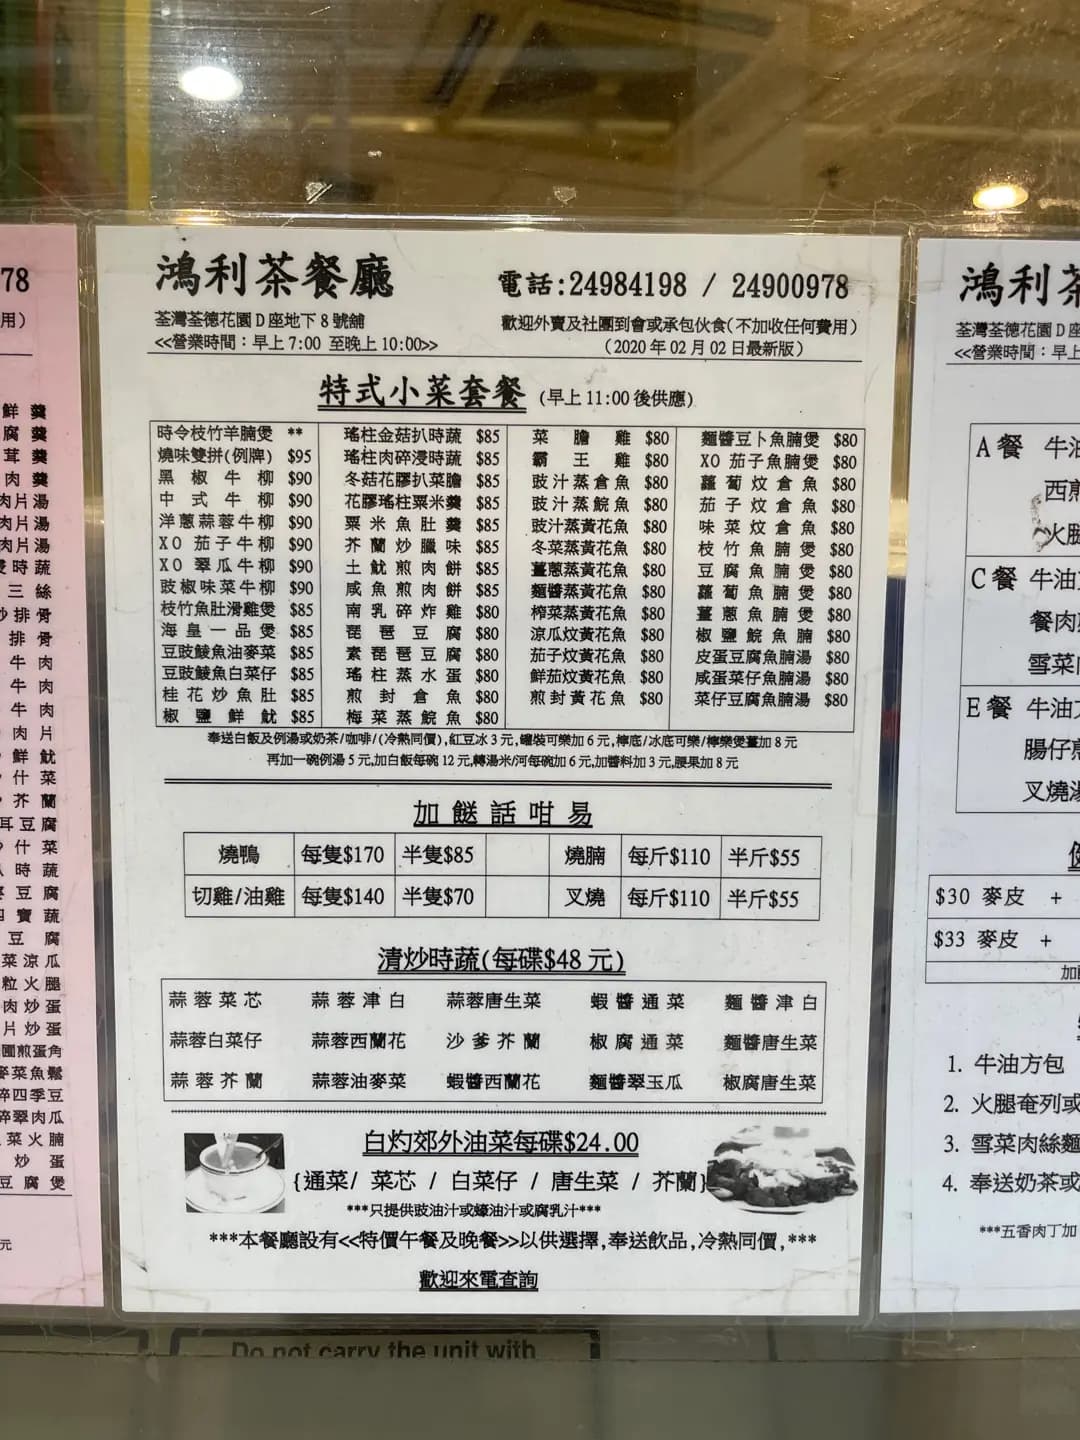 鴻利茶餐廳
電話:24984198 / 24900978
荃灣荃德花園D座地下8號舖
歡迎外賣及社團到會或承包伙食(不加收任何費用)
<<營業時間：早上7:00 至晚上10:00>>
(2020年02月02日最新版)
特式小菜套餐 (早上11:00後供應)
時令枝竹羊腩煲 **
燒味雙拼(例牌) $95
黑椒牛柳 $90
中式牛柳 $90
洋蔥蒜蓉牛柳 $90
XO茄子牛柳 $90
XO翠瓜牛柳 $90
豉椒味菜牛柳 $90
枝竹魚肚滑雞煲 $85
海皇一品煲 $85
豆豉鯪魚油麥菜 $85
豆豉鯪魚白菜仔 $85
桂花炒魚肚 $85
椒鹽鮮魷 $85
瑤柱金菇扒時蔬 $85
瑤柱肉碎浸時蔬 $85
冬菇花膠扒菜膽 $85
花膠瑤柱粟米羹 $85
粟米魚肚羹 $85
芥蘭炒臘味 $85
土魷煎肉餅 $85
咸魚煎肉餅 $85
南乳碎炸雞 $80
琵琶豆腐 $80
素琵琶豆腐 $80
瑤柱蒸水蛋 $80
煎封倉魚 $80
梅菜蒸鯇魚 $80
菜膽雞 $80
霸王雞 $80
豉汁蒸倉魚 $80
豉汁蒸鯇魚 $80
豉汁蒸黃花魚 $80
冬菜蒸黃花魚 $80
薑蔥蒸黃花魚 $80
麵醬蒸黃花魚 $80
榨菜蒸黃花魚 $80
涼瓜炆黃花魚 $80
茄子炆黃花魚 $80
鮮茄炆黃花魚 $80
煎封黃花魚 $80
麵醬豆卜魚腩煲 $80
XO茄子魚腩煲 $80
蘿蔔炆倉魚 $80
茄子炆倉魚 $80
味菜炆倉魚 $80
枝竹魚腩煲 $80
豆腐魚腩煲 $80
蘿蔔魚腩煲 $80
薑蔥魚腩煲 $80
椒鹽鯇魚腩 $80
皮蛋豆腐魚腩湯 $80
咸蛋菜仔魚腩湯 $80
菜仔豆腐魚腩湯 $80
奉送白飯及例湯或奶茶/咖啡/(冷熱同價),紅豆冰3元,罐裝可樂加6元,檸底/冰底可樂/檸樂煲薑加8元
再加一碗例湯5元,加白飯每碗12元,轉湯米/河每碗加6元,加醬料加3元,腰果加8元
加餸話咁易
燒鴨 每隻$170 半隻$85 燒腩 每斤$110 半斤$55
切雞/油雞 每隻$140 半隻$70 叉燒 每斤$110 半斤$55
清炒時蔬(每碟$48元)
蒜蓉菜芯 蒜蓉津白 蒜蓉唐生菜 蝦醬通菜 麵醬津白
蒜蓉白菜仔 蒜蓉西蘭花 沙爹芥蘭 椒腐通菜 麵醬唐生菜
蒜蓉芥蘭 蒜蓉油麥菜 蝦醬西蘭花 麵醬翠玉瓜 椒腐唐生菜
白灼郊外油菜每碟$24.00
{通菜/ 菜芯 / 白菜仔 / 唐生菜 / 芥蘭}
***只提供豉油汁或蠔油汁或腐乳汁***
***本餐廳設有<<特價午餐及晚餐>>以供選擇,奉送飲品,冷熱同價,***
歡迎來電查詢
78
用)
鮮羹
腐羹
茸羹
肉羹
肉片湯
肉片湯
肉片湯
時蔬
三絲
排骨
排骨
牛肉
牛肉
牛肉
肉片
鮮魷
什菜
芥蘭
耳豆腐
什菜
時蔬
豆腐
寶蔬
豆腐
菜涼瓜
粒火腿
肉炒蛋
片炒蛋
煎蛋角
菜魚鬆
碎四季豆
碎翠肉瓜
菜火腩
炒蛋
豆腐煲
元
鴻利茶
荃灣荃德花園D座
<<營業時間：早上
A餐 牛油
西煎
火腿
C餐 牛油
餐肉
雪菜
E餐 牛油
腸仔
叉燒湯
$30 麥皮 +
$33 麥皮 +
1. 牛油方包
2. 火腿奄列或
3. 雪菜肉絲麵
4. 奉送奶茶或
***五香肉丁加
Do not carry the unit with